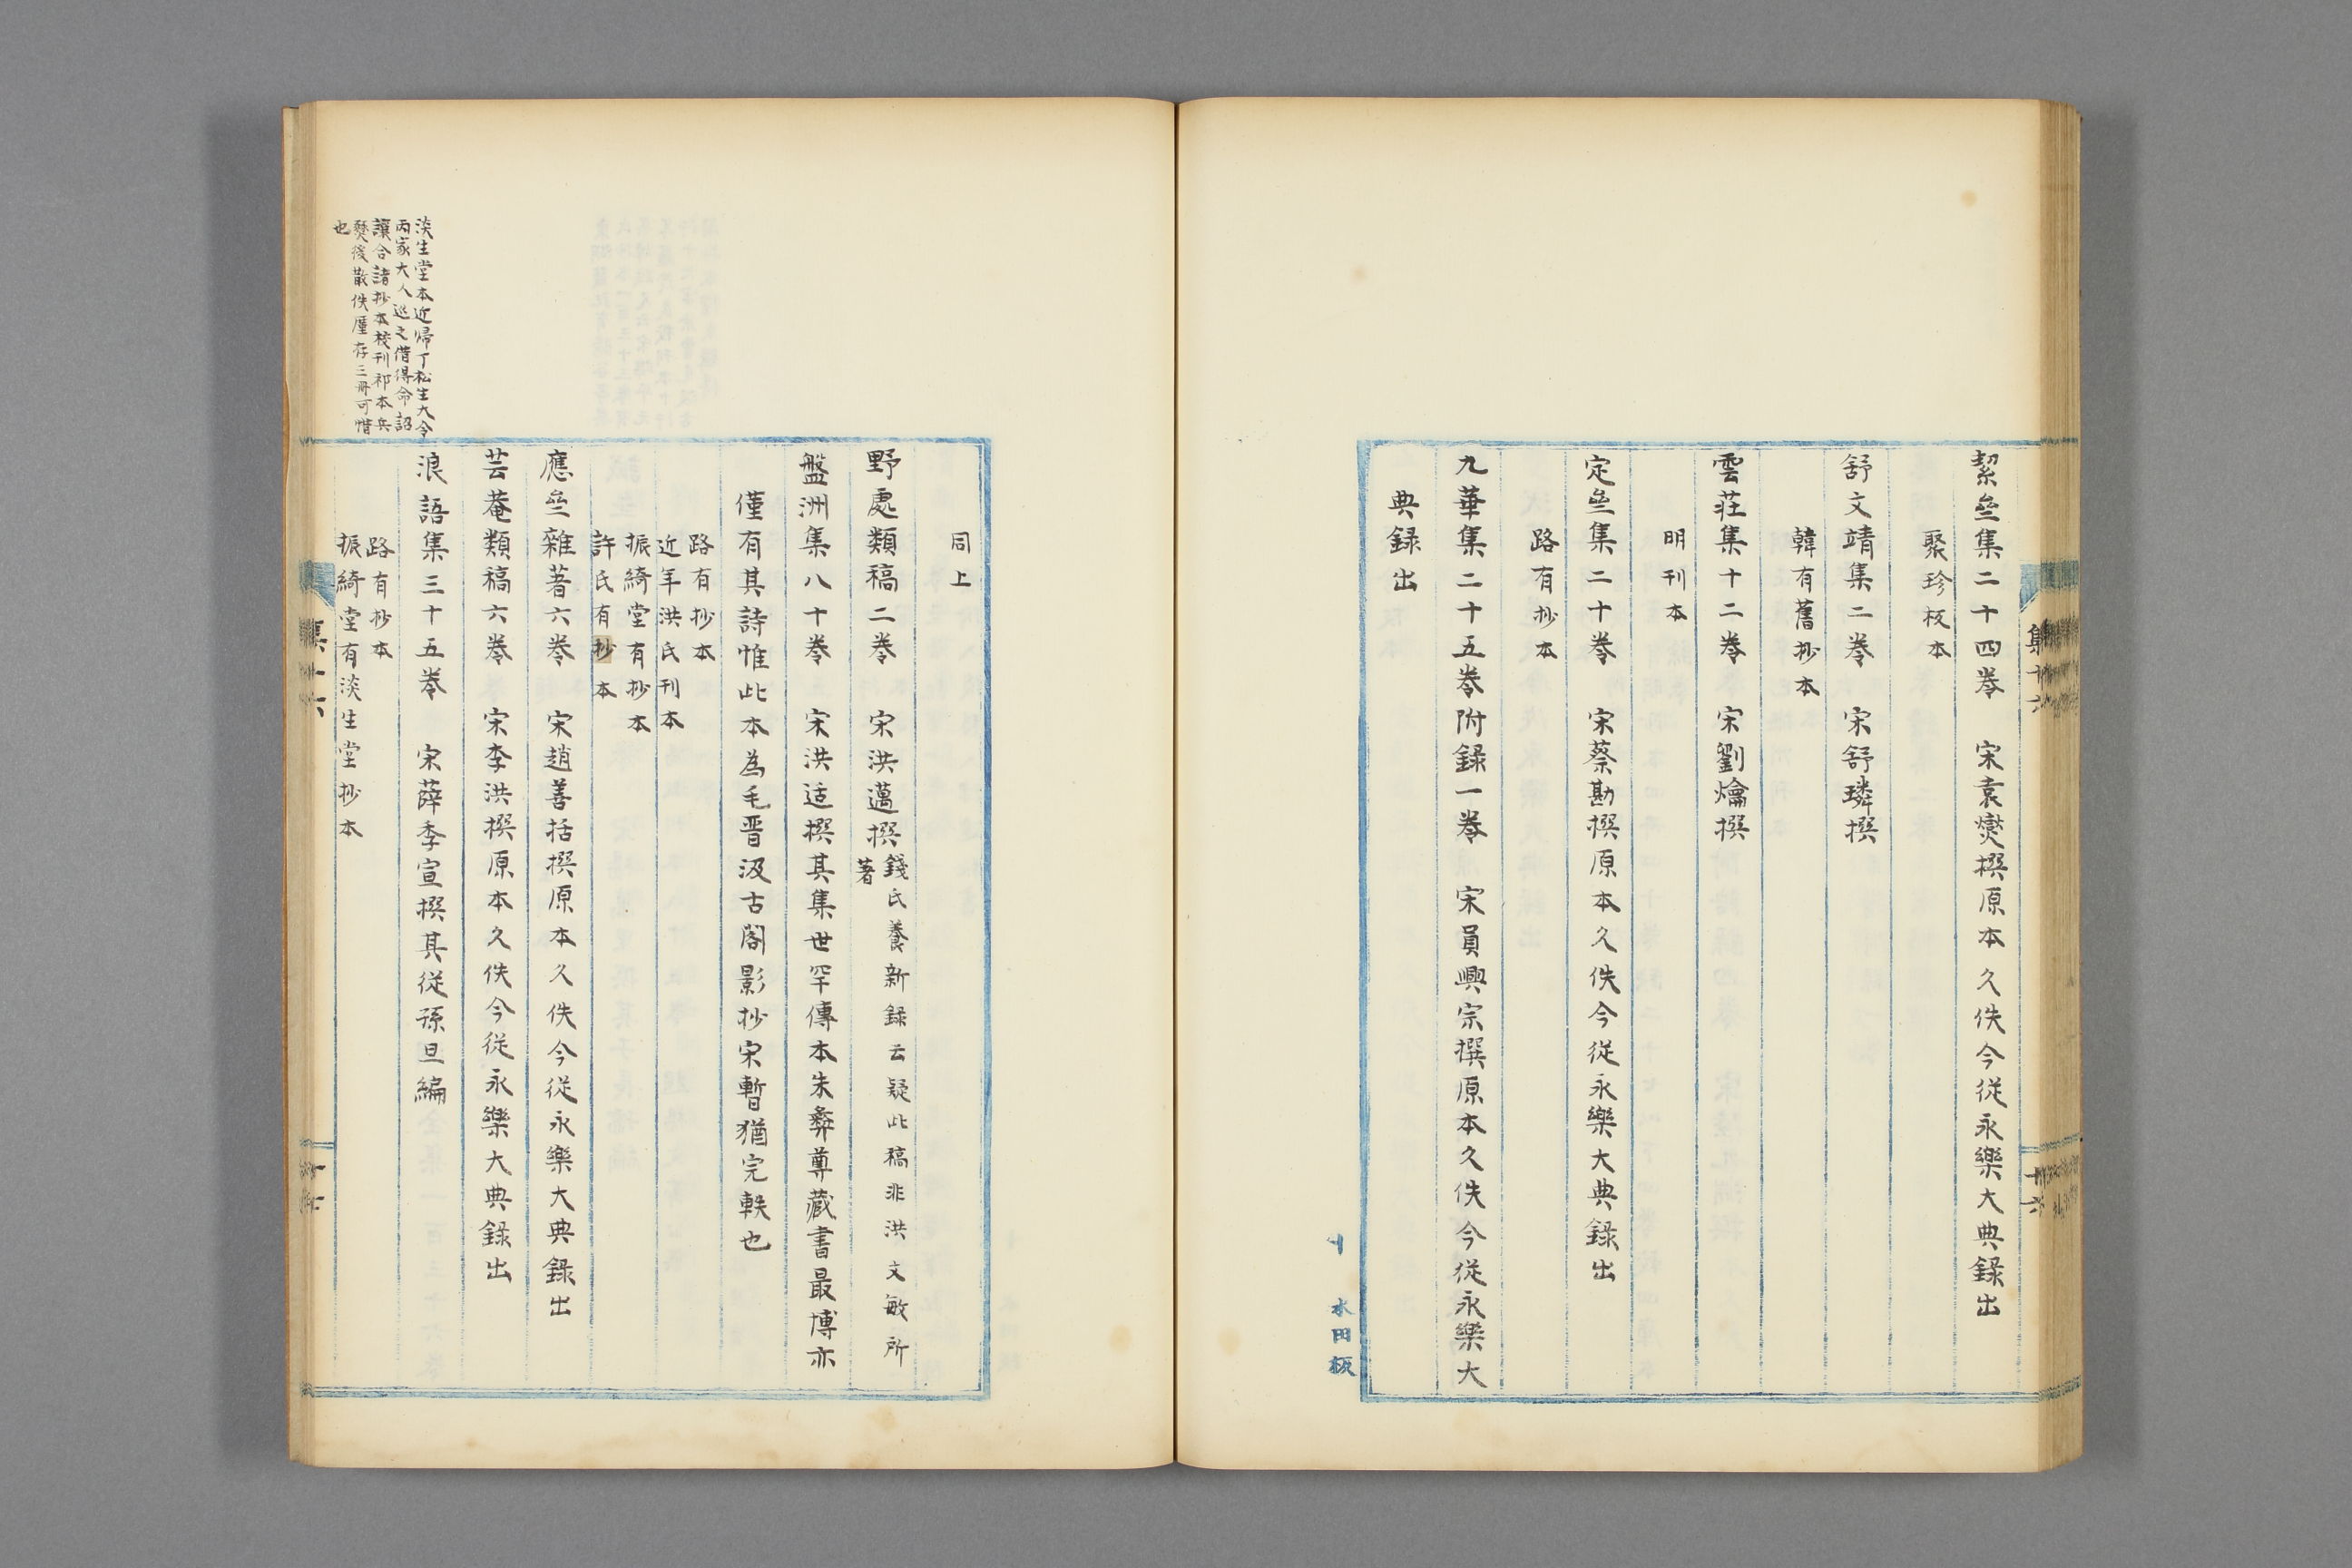 絜𡊮集二十四卷　宋袁燮撰原本久佚今從永樂大典錄出
聚珍板本
舒文靖集二卷　宋舒璘撰
韓有舊抄本
雲莊集十二卷　宋劉爚撰
明刊本
定𡊮集二十卷　宋蔡勘撰原本久佚今從永樂大典錄出
路有抄本
九華集二十五卷附録一卷　宋員興宗撰原本久佚今從永樂大
典録出
水田板
同上
野處類稿二卷　宋洪邁撰錢氏養新録云疑此稿非洪文敏所
著
盤洲集八十卷　宋洪适撰其集世罕傳本朱彝尊藏書最博亦
僅有其詩惟此本為毛晋汲古閣影抄宋暫猶完軼也
路有抄本
近年洪氏刊本
振綺堂有抄本
許氏有抄本
應𡊮雜著六卷　宋趙善括撰原本久佚今從永樂大典錄出
芸菴類稿六卷　宋李洪撰原本久佚今從永樂大典錄出
浪語集三十五卷　宋薛季宣撰其從孫旦編
路有抄本
振綺堂有淡生堂抄本
淡生堂本近帰丁松生大令
丙家大人巡之借得命詒
讓合諸抄本校刊祁本兵
燹後散佚厪存三冊可惜
也
集十六